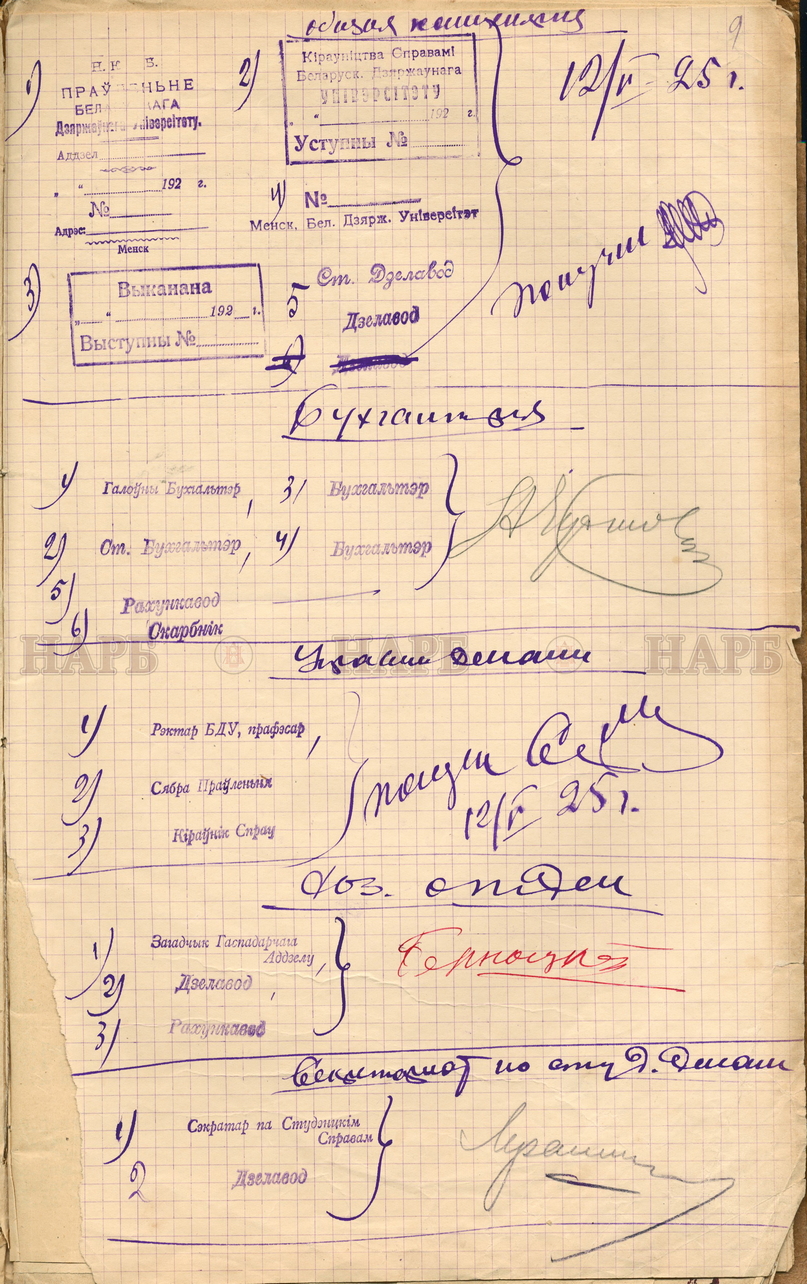 общая канцелярия
9
1)
Н. К. Б.
ПРАЎ ЕНЬНЕ
БЕЛА КАГА
Дзяржаўнага Унівэрсітэту.
Аддзел
" " 192 г.
№
Адрэс:
Менск
2)
Кіраўніцтва Справамі
Беларуск. Дзяржаунага
УНІВЭРСІТЭТУ
" " 192 г.
Уступны №
12/V 25 г.
4)
№
Менск, Бел. Дзярж. Унівэрсітэт
получил
3)
Выканана
" " 192 г.
Выступны №
5
Ст. Дзелавод
Дзелавод
Дзелавод
Бухгалтерия
1) Галоўны Бухгальтэр, 3) Бухгальтэр
2) Ст. Бухгальтэр, 4) Бухгальтэр
5) Рахункавод
6) Скарбнік
НАРБ НАРБ НАРБ
Управлен делами
1) Рэктар БДУ, прафэсар,
2) Сябра Праўленьня
3) Кіраўнік Спрау
получил
12/V 25 г.
Хоз. отдел
1) Загадчык Гаспадарчага
Аддзелу,
2) Дзелавод,
3) Рахункавод
Секретариат по студ. делам
1) Сэкратар па Студэнцкім
Справам
2 Дзелавод